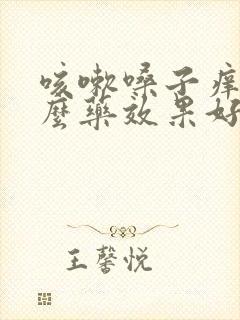 咳嗽嗓子痒
麽藥效果好
王馨悦